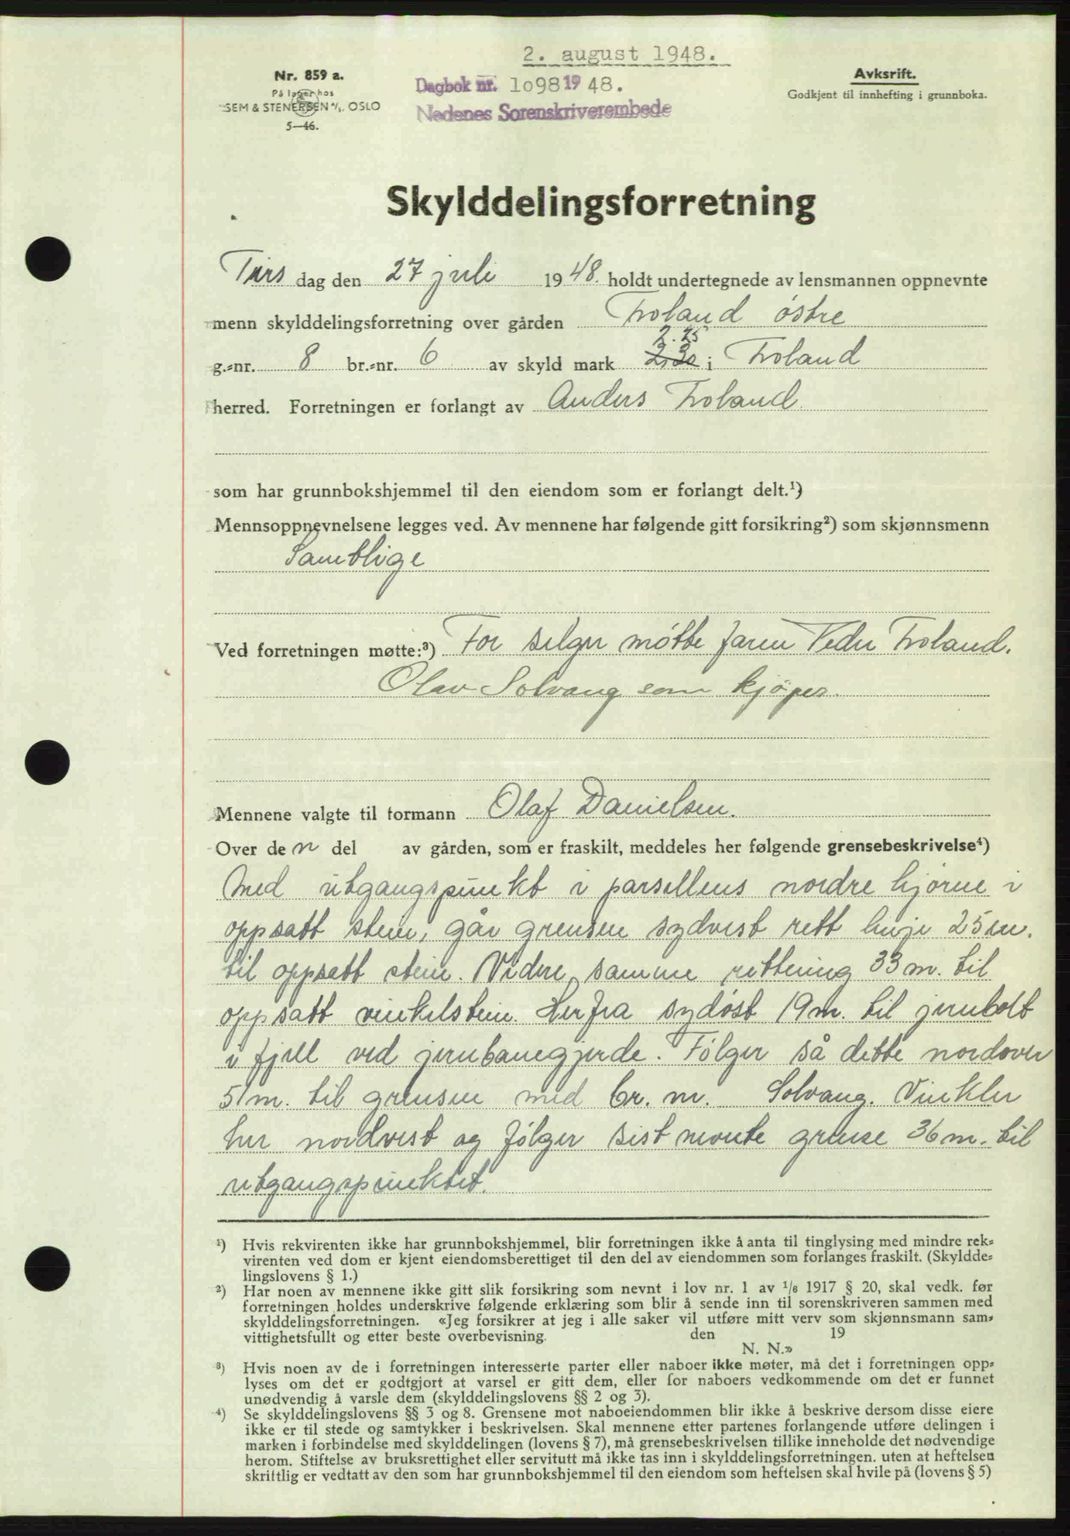 2. august 1948.
Nr. 859 a.
På lager hos
SEM & STENERSEN A/S, OSLO
5—46.
Dagbok nr. 1098 19 48.
Nedenes Sorenskriverembede
Avksrift.
Godkjent til innhefting i grunnboka.
Skylddelingsforretning
Tirs dag den 27 juli 19 48. holdt undertegnede av lensmannen oppnevnte
menn skylddelingsforretning over gården Froland østre
2.25
g.-nr. 8 br.-nr. 6 av skyld mark 2,30 i Froland
herred. Forretningen er forlangt av Anders Froland.
som har grunnbokshjemmel til den eiendom som er forlangt delt.¹)
Mennsoppnevnelsene legges ved. Av mennene har følgende gitt forsikring²) som skjønnsmenn
Samtlige
Ved forretningen møtte:³) For selger møtte faren Peder Froland.
Olav Solvang som kjøper.
Mennene valgte til formann Olaf Danielsen.
Over de n del av gården, som er fraskilt, meddeles her følgende grensebeskrivelse⁴)
Med utgangspunkt i parsellens nordre hjørne i
oppsatt stein, går grensen sydvest rett linje 25 m.
til oppsatt stein. Videre samme rettning 33 m. til
oppsatt vinkelstein. Herfra sydøst 19 m. til jernbolt
i fjell ved jernbanegjerde. Følger så dette nordover
51 m. til grensen med br. nr. Solvang. Vinkler
her nordvest og følger sist nevnte grense 36 m. til
utgangspunktet.
¹) Hvis rekvirenten ikke har grunnbokshjemmel, blir forretningen ikke å anta til tinglysing med mindre rek-
virenten ved dom er kjent eiendomsberettiget til den del av eiendommen som forlanges fraskilt. (Skyldde-
lingslovens § 1.)
²) Har noen av mennene ikke gitt slik forsikring som nevnt i lov nr. 1 av 1/6 1917 § 20, skal vedk. før
forretningen holdes underskrive følgende erklæring som blir å sende inn til sorenskriveren sammen med
skylddelingsforretningen. «Jeg forsikrer at jeg i alle saker vil utføre mitt verv som skjønnsmann sam-
vittighetsfullt og etter beste overbevisning. den 19
N. N.»
³) Hvis noen av de i forretningen interesserte parter eller naboer ikke møter, må det i forretningen opp-
lyses om det er godtgjort at varsel er gitt dem, eller for naboers vedkommende om det er funnet
unødvendig å varsle dem (skylddelingslovens §§ 2 og 3).
⁴) Se skylddelingslovens §§ 3 og 8. Grensene mot naboeiendommen blir ikke å beskrive dersom disse eiere
ikke er til stede og samtykker i beskrivelsen. Skal mennene etter partenes forlangende utføre delingen i
marken i forbindelse med skylddelingen (lovens § 7), må grensebeskrivelsen tillike inneholde det nødvendige
herom. Stiftelse av bruksrettighet eller servitutt må ikke tas inn i skylddelingsforretningen. uten at heftelsen
skriftlig er vedtatt av den som har grunnbokshjemmel til den eiendom som heftelsen skal hvile på (lovens § 5)